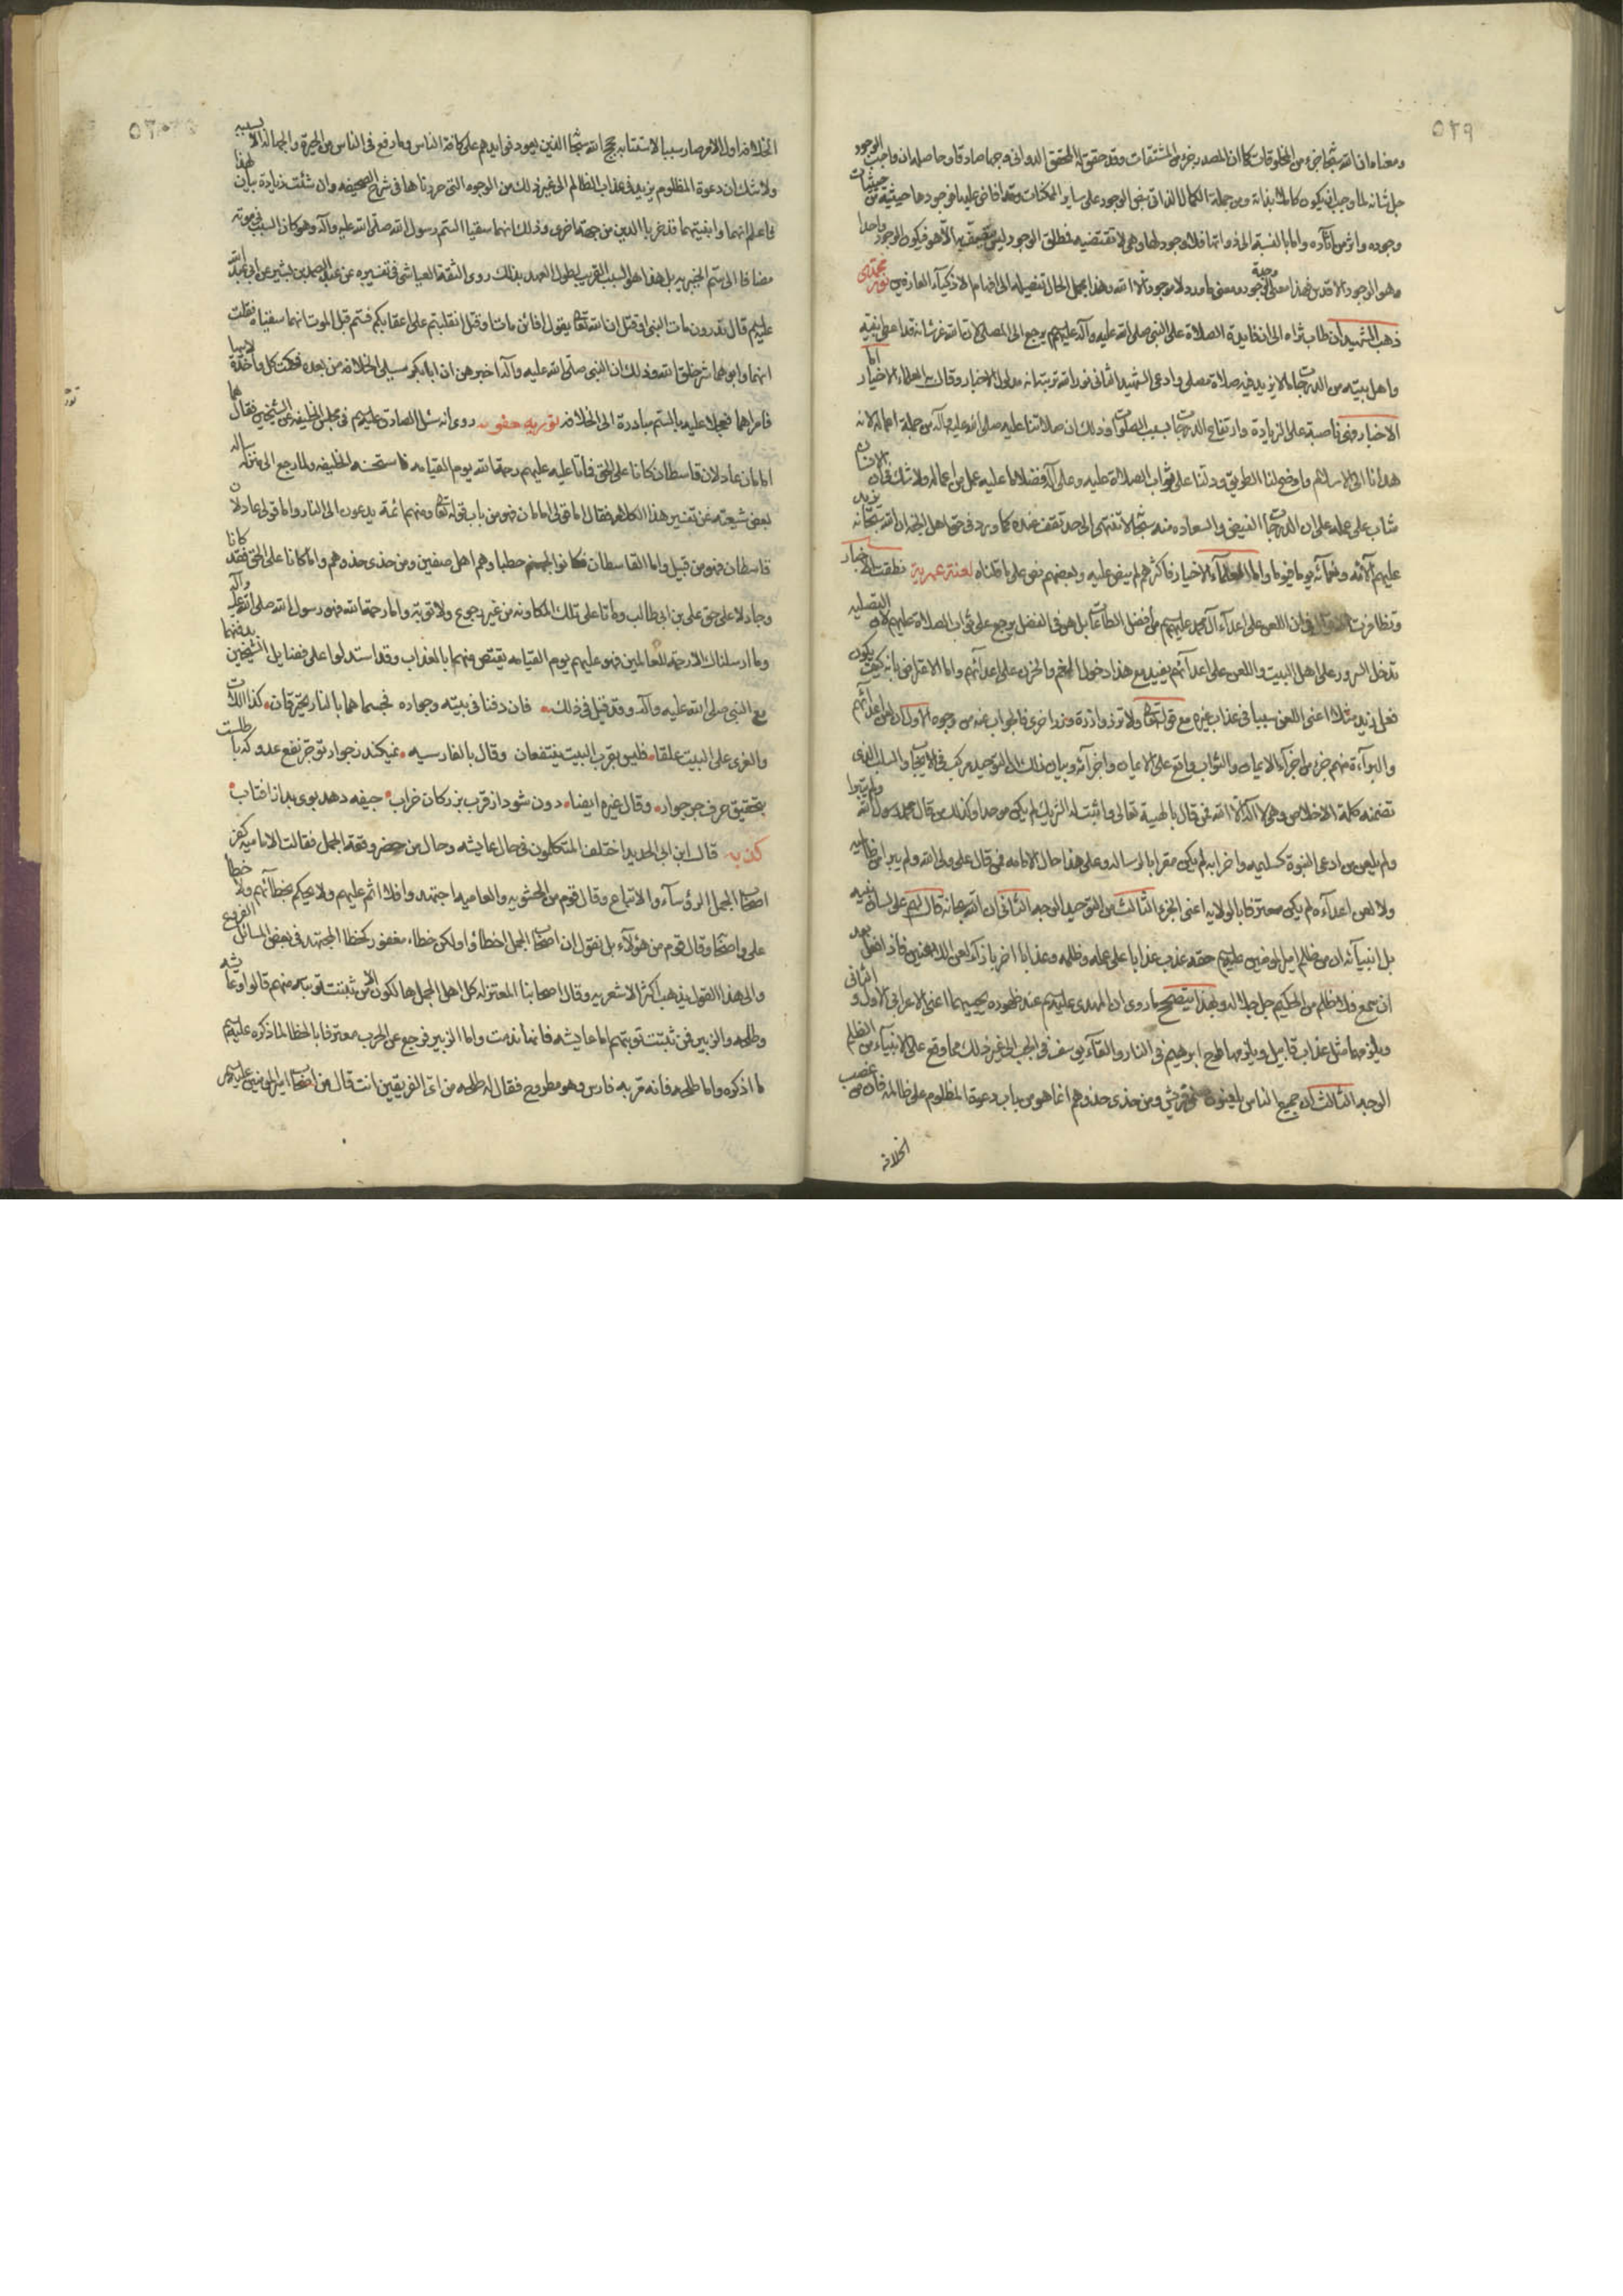 ٥٢٩
ومعناه ان الله سبحانه من المخلوقات كما ان المصدر جزء من المشتقات وقد حققه المحقق الدواني وجها صادقا وحاصله ان واجب الوجود
جل شانه لما وجب ان يكون كاملا بذاته ومن جملة الكمال الذاتي فيض الوجود على ساير الممكنات وقد افاض عليها فوجودها حيثية من حيثيات
وجوده واثر من آثاره واما بالنسبة الى ذواتها فلا وجود لها وهي لا تقتضيه فمطلق الوجود ليس حقيقة الا هو فيكون الوجود واحدا
وهو الوجود الاقدس فهذا معنى وحدة الوجود ومعنى ما ورد ولا موجود الا الله وهذا مجمل الحال تفصيله الى افهام الاذكياء العارفين نور محمدي
ذهب الشهيدان طاب ثراه الى ان فايدة الصلاة على النبي صلى الله عليه وآله عليهم يرجع الى المصلي لان الله عز شانه قد اعطى نبيه
واهل بيته من الدرجات ما لا يزيد فيه صلاة مصلي وادعى الشهيد الثاني نور الله تربته انه مدلول الاخبار وقال به العلماء الاخيار اما
الاخبار فهي ناصة على الزيادة وارتفاع الدرجات بسبب الصلوات وذلك ان صلاتنا عليه صلى الله عليه وآله من جملة اعماله لانه
هدانا الى الاسلام واوضح لنا الطريق ودلنا على ثواب الصلاة عليه وعلى آله فضلا ما عليه عمل من اعماله ولا شك في ان الانسان
يثاب على عمله على ان الدرجات الفيض والسعاده منه سبحانه لا تنتهي الى حد تقف عنده كما ورد في حق اهل الجنة ان الله سبحانه يزيد
عليهم آلائه ونعمائه يوما فيوما واما العلماء الاخيار فاكثرهم لم ينص عليه وبعضهم نص على ما قلناه لعنة عمرية نطقت الاخبار
وتظافرت بان اللعن على اعداء آل محمد عليهم من افضل الطاعات بل هو في الفضل يرجع على ثواب الصلاة عليهم لان التصليه
تدخل السرور على اهل البيت واللعن على اعدائهم يفيد مع هذا دخول الغم والحزن على اعدائهم واما الاعتراض بانه كيف يكون
فعل زيد مثلا اعنى اللعن سببا في عذاب غيره مع قوله تعالى ولا تزر وازرة وزر اخرى فالجواب عنه من وجوه الاول ان لعن اعدائهم
والبراءة منهم جزء من اجزاء الايمان والثواب واقع على الايمان واجزائه وبيان ذلك ان التوحيد مركب في الايجاب والسلب الذي
تضمنه كلمة الاخلاص وهي لا اله الا الله فمن قال بالهية تعالى واثبت له الشريك لم يكن موحدا وكذلك من قال محمد رسول الله ولم يتبرا
ولم يلعن من ادعى النبوة كمسيلمه واضرابه لم يكن مقرا بالرسالة وعلى هذا حال الامامه فمن قال علي ولي الله ولم يبرا من ظالميه
ولا لعن اعداءه لم يكن معترفا بالولايه اعنى الجزء الثالث من التوحيد الوجه الثاني ان الله سبحانه قال لهم على لسان نبيه
بل انبيائه ان من ظلم امير المومنين عليهم حقه عذب عذابا على عمله وظلمه وعذابا اخر بازاء لعن اللاعنين فاذا فعل بعد
ان سمع فلا ظلم من الحكيم جل جلاله وبهذا يتضح ما روى ان المهدي عليهم عند ظهوره يحييهما اعني الاعرابي الاول والثاني
ويلزمهما مثل عذاب قابيل ويلزمهما طرح ابرهيم في النار والقاء يوسف في الجب الى غير ذلك مما وقع على الانبياء من الظلم
الوجه الثالث ان جميع الناس يلعنون قريش ومن حذى حذوهم انما هو من باب دعوة المظلوم على ظالمه فان من غصب
الخلافه
الخلافة اول الامر صار سببا لاستتار حجج الله سبحانه الذين يعود في ايديهم على كافة الناس وما دفع في الناس من الحيرة والجهالة الا بسببه
ولا شك ان دعوة المظلوم يزيد في عذاب الظالم الى غير ذلك من الوجوه التي حررناها في شرح الصحيفه وان شئت زيادة بيان لهذا
فاعلم انهما وابنتيهما قد خربا الدين من جهة اخرى وذلك انهما سقيا السم رسول الله صلى الله عليه وآله وهو كان السبب في موته
مضافا الى سم الخيبريه بل هذا هو السبب القريب لطول العهد بذلك روى الثقة العياشي في تفسيره عن عبد الصمد بن بشير عن ابي عبد الله
عليهم قال تدرون مات النبي او قتل ان الله تعالى يقول افان مات او قتل انقلبتم على اعقابكم فسم قبل الموت انهما سقتاه فقلت
انهما وابوهما شر خلق الله وذلك ان النبي صلى الله عليه وآله اخبرهن ان ابابكر سيلي الخلافه من بعده فحكت كل واحدة لابيها
فامراهما فعجلا عليه بالسم مبادرة الى الخلافة تورية حقويه روى انه سئل الصادق عليهم في مجلس الخليفه عن الشيخين فقال هما
امامان عادلان قاسطان كانا على الحق فماتا عليه عليهم رحمة الله يوم القيامه فاستحسنه الخليفه ولما رجع الى منزله ساله
بعض شيعته عن تفسير هذا الكلام فقال اما قولي امامان فهو من باب قوله تعالى ومنهم ائمة يدعون الى النار واما قولي عادلان
قاسطان فهو من قبيل واما القاسطان فكانوا لجهنم حطبا وهم اهل صفين ومن حذى حذوهم واما كانا على الحق فقد كانا
وجادلا على حق علي بن ابي طالب وماتا على تلك المكاونه من غير رجوع ولا توبة واما رحمة الله فهو رسول الله صلى الله عليه وآله
وما ارسلناك الا رحمة للعالمين فهو عليهم يوم القيامه يقتص منهما بالعذاب وقد استدلوا على فضايل الشيخين بدفنهما
مع النبي صلى الله عليه وآله وقد قيل في ذلك فان دفنا في بيته وجواره فجسماهما بالنار يحترقان كذا اللات
والعزى على البيت علقا فليس بقرب البيت ينتفعان وقال بالفارسيه نميكند زجوار تو جز نفع عدو كه با طلست
بتحقيق حرف جر جوار وقال غيره ايضا دون شود از قرب بزركان خراب جيفه دهد بوى بد از افتاب
كذبه قال ابن ابي الحديد اختلف المتكلمون في حال عايشه وحال من حضر وقعة الجمل فقالت الاماميه كفر
اصحاب الجمل الرؤساء والاتباع وقال قوم من الحشويه والعاميه اجتهدوا فلا اثم عليهم ولا يحكم بخطائهم ولا خطا
علي واصحابه وقال قوم من هؤلاء بل نقول ان اصحاب الجمل اخطأوا ولكن خطاء مغفور كخطا المجتهد في بعض مسائل الفروع
والى هذا القول يذهب اكثر الاشعريه وقال اصحابنا المعتزله كل اهل الجمل هالكون الا من ثبتت توبته منهم قالوا وعايشه
وطلحه والزبير فمن ثبتت توبتهم اما عايشه فانها ندمت واما الزبير فرجع عن الحرب معترفا بالخطا لما ذكره عليهم
لما ذكره واما طلحه فانه مر به فارس وهو مطروح فقال له طلحه من اي الفريقين انت قال من اصحاب امير المومنين عليهم